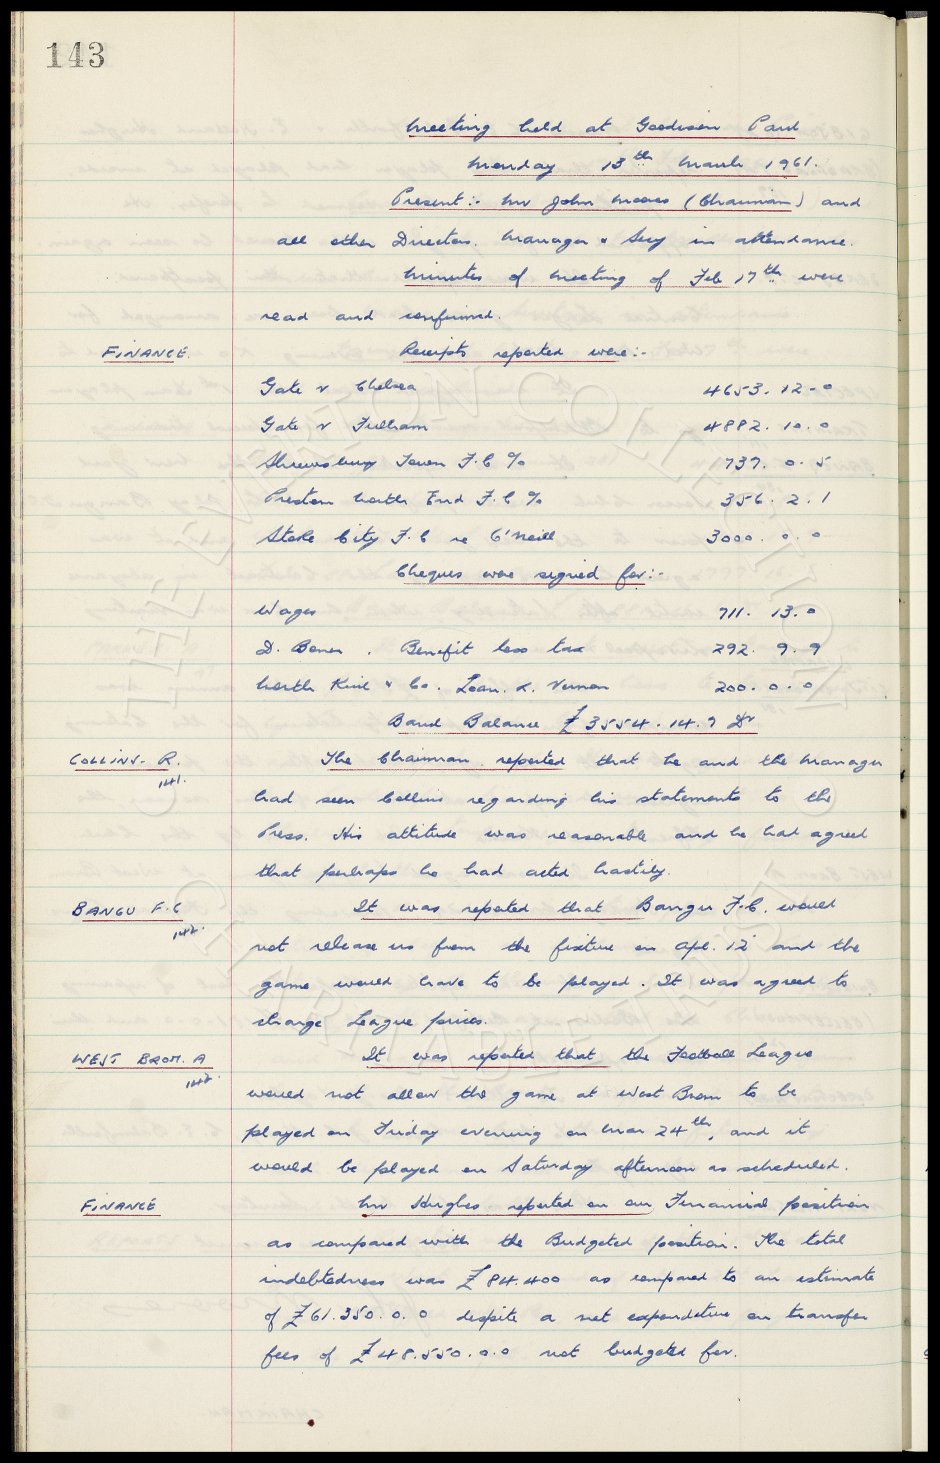 143
Meeting held at Goodison Park
Monday 13th March 1961.
Present :- Mr John Moores (Chairman) and
all other Directors. Manager & Secy in attendance.
Minutes of Meeting of Feb 17th were
read and confirmed.
FINANCE. Receipts reported were :-
Gate v Chelsea 4653. 12 - 0
Gate v Fulham 4882. 10. 0
Shrewsbury Town F.C % 1737. 0. 5
Preston North End F.C % 356. 2. 1
Stoke City F.C re O'Neill 3000. 0. 0
Cheques were signed for :-
Wages 711. 13. 0
D. Bonner. Benefit less tax 292. 9. 9
North Kirk & Co. Loan. R. Vernon 200. 0. 0
Bank Balance £3554. 14. 9 Dr
COLLINS. R. The Chairman reported that he and the Manager
141. had seen Collins regarding his statements to the
Press. His attitude was reasonable and he had agreed
that perhaps he had acted hastily.
BANGU F.C It was reported that Bangu F.C. would
142. not release us from the fixture on Apl. 12 and the
game would have to be played. It was agreed to
charge League prices.
WEST BROM. A It was reported that the Football League
142. would not allow the game at West Brom to be
played on Friday evening on Mar 24th, and it
would be played on Saturday afternoon as scheduled.
FINANCE Mr Hughes reported on our Financial position
as compared with the Budgeted position. The total
indebtedness was £84.400 as compared to an estimate
of £61.350. 0. 0 despite a net expenditure on transfer
fees of £48.550. 0. 0 not budgeted for.